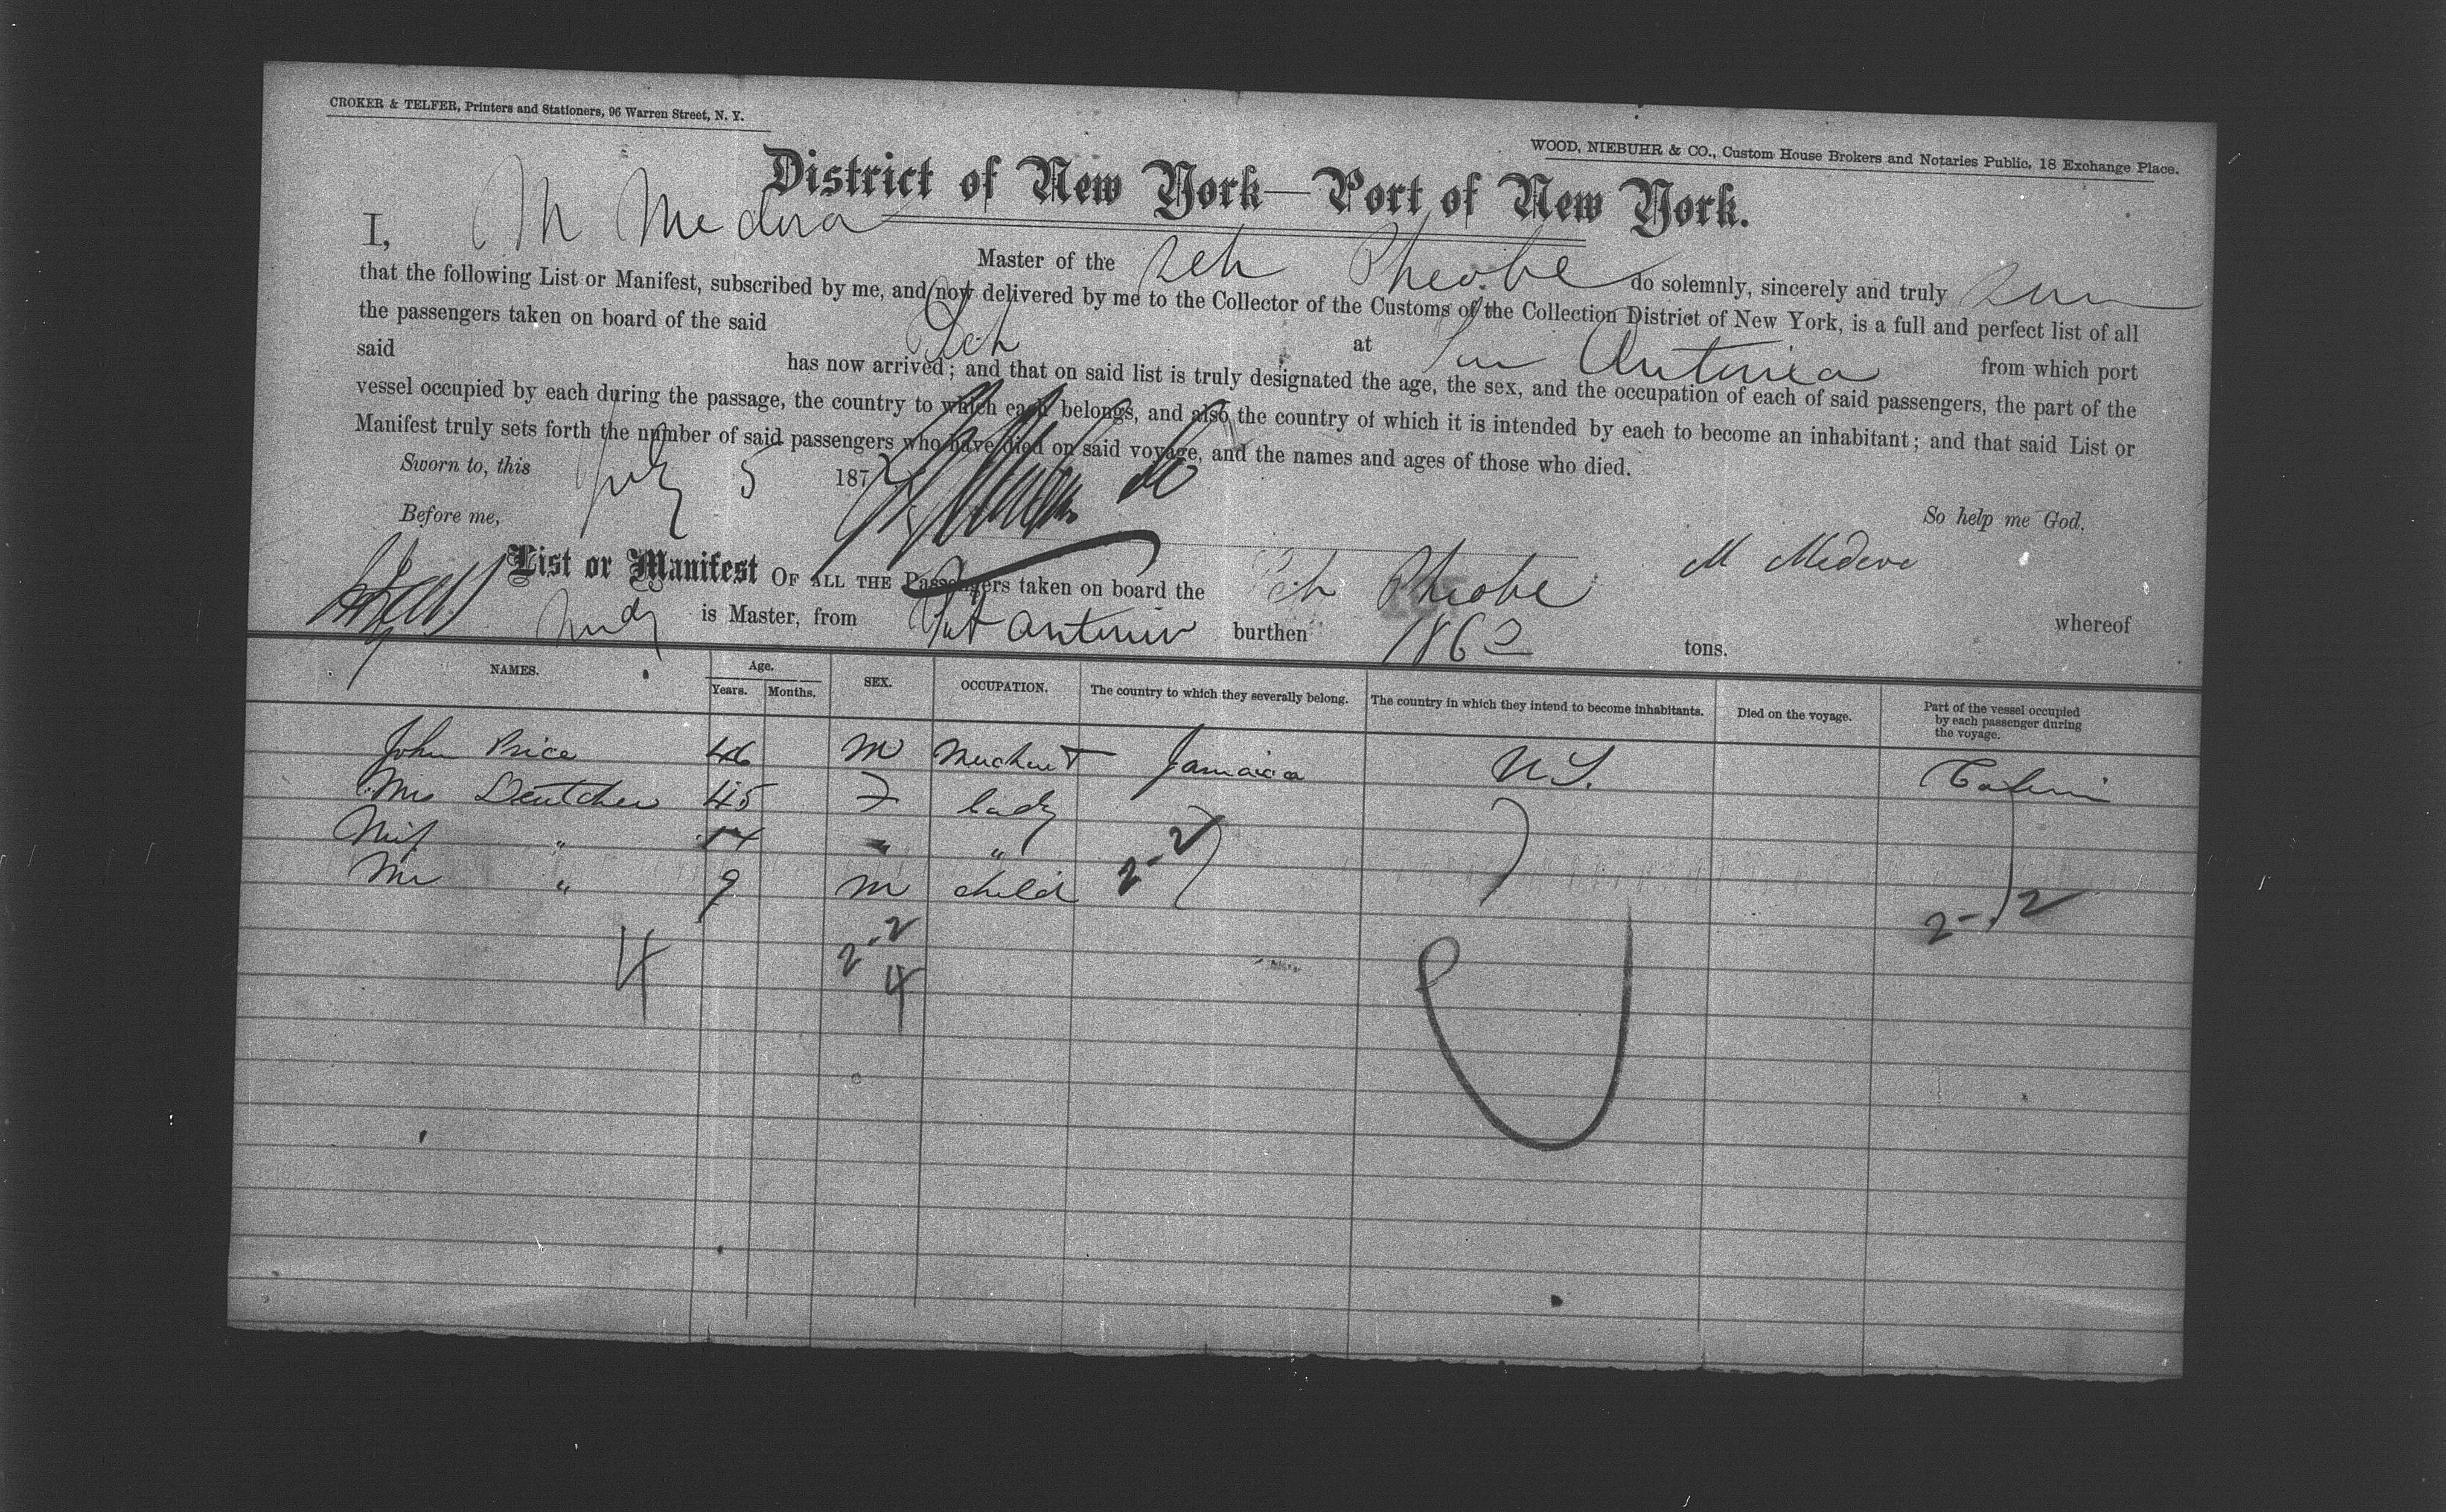 CROKER & TELFER, Printers and Stationers, 96 Warren Street, N. Y.
WOOD, NIEBUHR & CO., Custom House Brokers and Notaries Public, 18 Exchange Place.
District of New York—Port of New York.
I, M Master of the Sch Pheobe do solemnly, sincerely and truly
that the following List or Manifest, subscribed by me, and now delivered by me to the Collector of the Customs of the Collection District of New York, is a full and perfect list of all
the passengers taken on board of the said Sch at Antonio from which port
said has now arrived; and that on said list is truly designated the age, the sex, and the occupation of each of said passengers, the part of the
vessel occupied by each during the passage, the country to which each belongs, and also the country of which it is intended by each to become an inhabitant; and that said List or
Manifest truly sets forth the number of said passengers who have died on said voyage, and the names and ages of those who died.
Sworn to, this July 5 187
So help me God.
Before me,
M
List or Manifest OF ALL THE Passengers taken on board the Sch Pheobe whereof
is Master, from Port Antonio burthen 1862 tons.
NAMES. Age. Years. Months. SEX. OCCUPATION. The country to which they severally belong. The country in which they intend to become inhabitants. Died on the voyage. Part of the vessel occupied by each passenger during the voyage.
John Price 46 M Merchant Jamaica U S. Cabin
Mrs 45 F lady
Miss " 14 " "
Mr " 9 M child 2-2
2-2
4 2-2
4